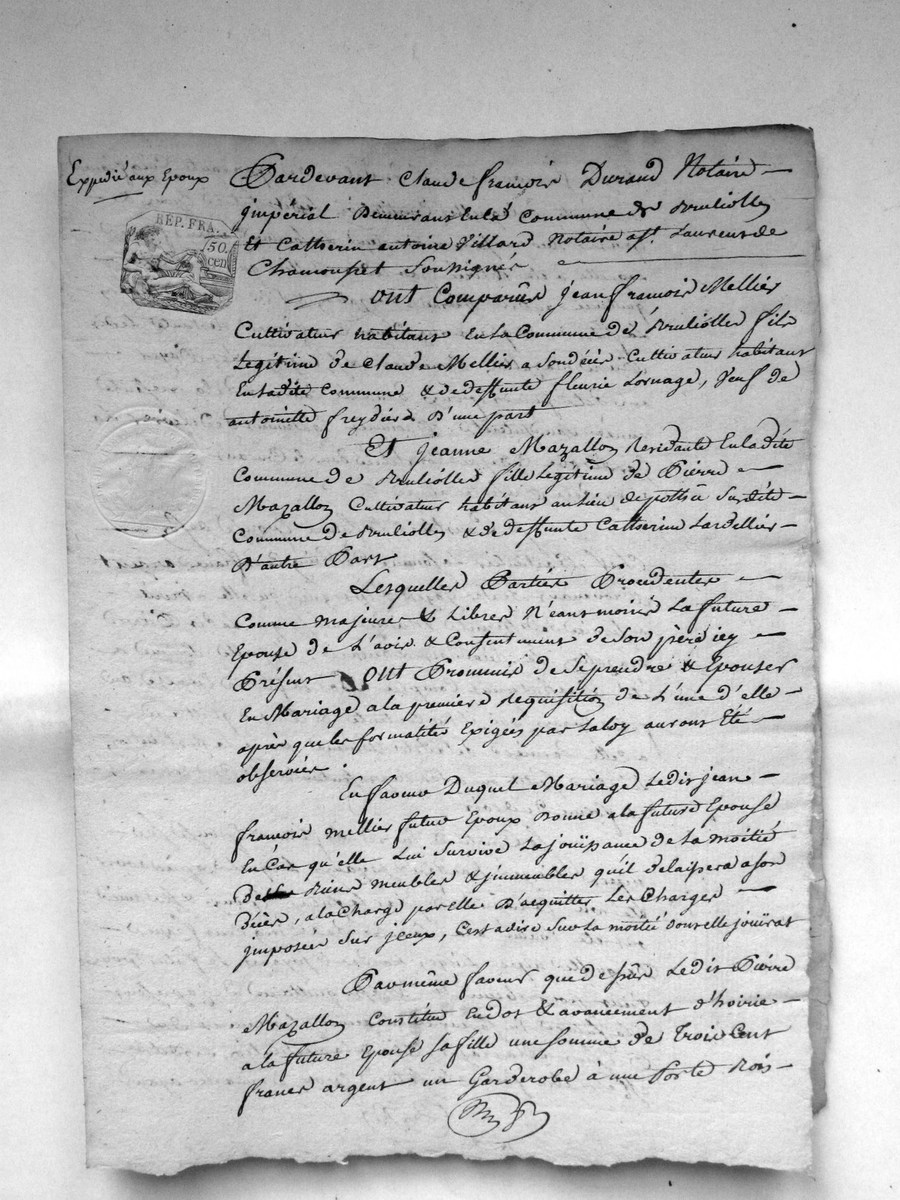 Expedié aux Epoux
REP. FRA.
50.
cen
Pardevant Claude françois Durand Notaire
jmpérial Demeurant En la Commune de Brulliolles
Et Catherin antoine Villard Notaire a St. Laurent de
Chamousset Soussignés
ont Comparûs jean françois Mellier
Cultivateur habitant En La Commune de Brulliolles fils
Légitime de Claude Mellier a Son décès Cultivateur habitant
En ladite Commune & de deffunte fleurie Lornage, Veuf de
antoinette freydiere D'une part
Et jeanne Mazallon Residante En ladite
Commune de Brulliolles fille Légitime de Pierre
Mazallon Cultivateur habitant au Lieu de Susdite
Commune de Brulliolles & de deffunte Catherine Lardellier
D'autre Part
Lesquelles Parties Procedentes
Comme majeures & Libres N'eanmoins La future
Epouse de L'avis & Consentement de Son père icy
Présent ont Prommis de Se prendre & Epouser
En Mariage a la première Requisition de L'une d'elle
après que les formalités Exigées par La loy auront Eté
observées .
En faveur Duquel Mariage Ledit jean
françois mellier futur Epoux Donne a la future Epouse
En Cas qu'elle Lui Survive La jouïssance de La moitié
des Biens meubles & jmmeubles qu'il delaissera a Son
Décès, a la Charge par elle D'acquitter Les Charges
jmposées Sur jceux, C'est a dire Sur La moitié dont elle jouïrat
Par même faveur que dessûs Ledit Pierre
Mazallon Constitue En dot & avancement d'hoirie
a la future Epouse Sa fille une Somme de Trois Cent
francs argent un Garderobe à une Porte Bois